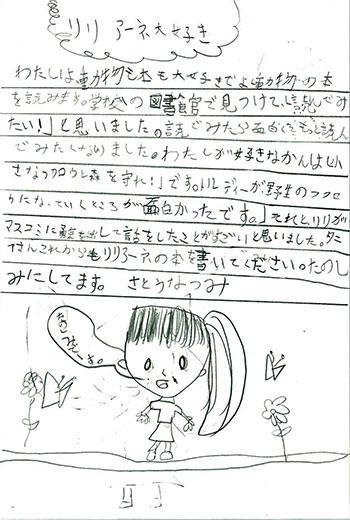 リリアーネ大好き
わたしは動物も本も大好きでよく動物の本
を読みます。学校の図書館で見つけて、「読んでみ
たい!」と思いました。読んでみたら面白くてもっと読ん
でみたくなりました。わたしが好きなかんは「小
さなフクロウと森を守れ!」です。トルディーが野生のフクロ
うになっていくところが面白かったです。それとリリが
マスコミに勇気を出して話をしたことがすごいと思いました。タニ
さんこれからもリリアーネの本を書いてください。たのし
みにしてます。 さとうなつみ